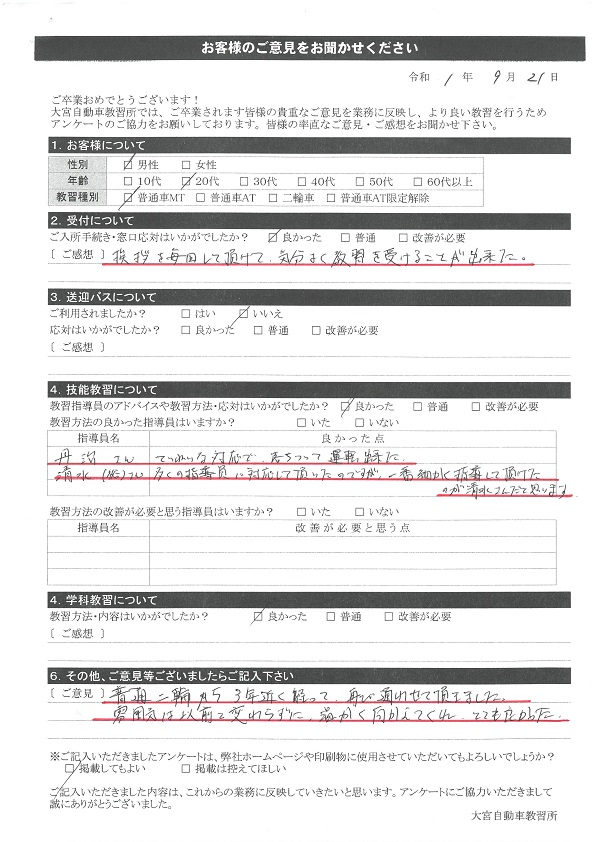 お客様のご意見をお聞かせください
令和 1 年 9 月 21 日
ご卒業おめでとうございます！
大宮自動車教習所では、ご卒業されます皆様の貴重なご意見を業務に反映し、より良い教習を行うため
アンケートのご協力をお願いしております。皆様の率直なご意見・ご感想をお聞かせ下さい。
1. お客様について
性別 ☑ 男性 □ 女性
年齢 □ 10代 ☑ 20代 □ 30代 □ 40代 □ 50代 □ 60代以上
教習種別 ☑ 普通車MT □ 普通車AT □ 二輪車 □ 普通車AT限定解除
2. 受付について
ご入所手続き・窓口応対はいかがでしたか？ ☑ 良かった □ 普通 □ 改善が必要
〔 ご感想 〕 挨拶を毎回して頂けて、気分よく教習を受けることが出来た。
3. 送迎バスについて
ご利用されましたか？ □ はい ☑ いいえ
応対はいかがでしたか？ □ 良かった □ 普通 □ 改善が必要
〔 ご感想 〕
4. 技能教習について
教習指導員のアドバイスや教習方法・応対はいかがでしたか？ ☑ 良かった □ 普通 □ 改善が必要
教習方法の良かった指導員はいますか？ □ いた □ いない
指導員名 良かった点
丹治さん 対応で、 運転出来た。
清水 さん 多くの指導員に対応して頂いたのですが、一番細かく指導して頂けた
のが清水さんだと思います
教習方法の改善が必要と思う指導員はいますか？ □ いた □ いない
指導員名 改善が必要と思う点
4. 学科教習について
教習方法・内容はいかがでしたか？ ☑ 良かった □ 普通 □ 改善が必要
〔 ご感想 〕
6. その他、ご意見等ございましたらご記入下さい
〔 ご意見 〕 普通二輪から3年近く経って、再び通わせて頂きました。
雰囲気は以前と変わらずに、温かく向かえてくれ、とても良かった。
※ご記入いただきましたアンケートは、弊社ホームページや印刷物に使用させていただいてもよろしいでしょうか？
☑ 掲載してもよい □ 掲載は控えてほしい
ご記入いただきました内容は、これからの業務に反映していきたいと思います。アンケートにご協力いただきまして
誠にありがとうございました。
大宮自動車教習所